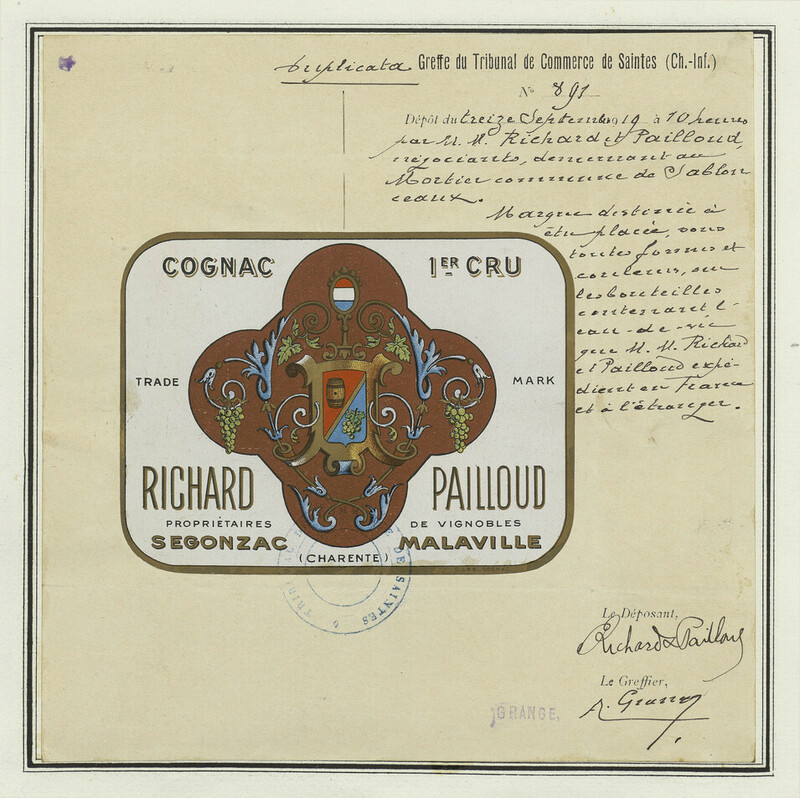 Duplicata Greffe du Tribunal de Commerce de Saintes (Ch.-Inf.)
N° 891
Dépôt du treize Septembre 1919 à 10 heures
par M. M. Richard et Pailloud,
négociants, demeurant au
Mortier commune de Sablon
ceaux.
Marque destinée à
être placée, sous
toutes formes et
couleurs, sur
les bouteilles
contenant l'
eau-de-vie
que M. M. Richard
et Pailloud expé-
dient en France
et à l'étranger.
COGNAC 1ER CRU
TRADE MARK
RICHARD PAILLOUD
PROPRIÉTAIRES DE VIGNOBLES
SEGONZAC MALAVILLE
(CHARENTE)
DE SAINTES
Le Déposant,
Richard & Pailloud
Le Greffier,
GRANGE,